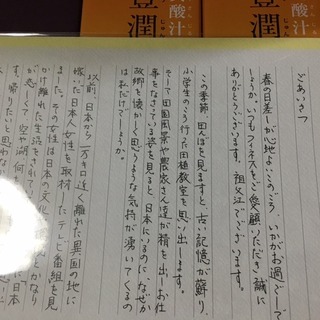 酸汁
豊潤
ごあいさつ
春の日差しが心地よいこのごろ、いかがお過ごしで
しょうか。いつもフィネスをご愛顧いただき誠に
ありがとうございます。祖父江でございます。
この季節、田んぼを見ますと、古い記憶が蘇り、
小学生のころ行った田植教室を思い出します。
そして田園風景や農水さん達が精を出しお仕
事をなさている姿を見ると、日本にいるのに、なぜか
故郷を懐かしく思うような気持が湧いてくるの
は私だけでしょうか。
以前、日本から一万キロ近く離れた異国の地に
嫁いだ日本人女性を取材したテレビ番組を見
ました。その女性は日本の文化
かけ離れた生活をされてい
が恋しくて、空や湖、何
す。帰りたいと思わな